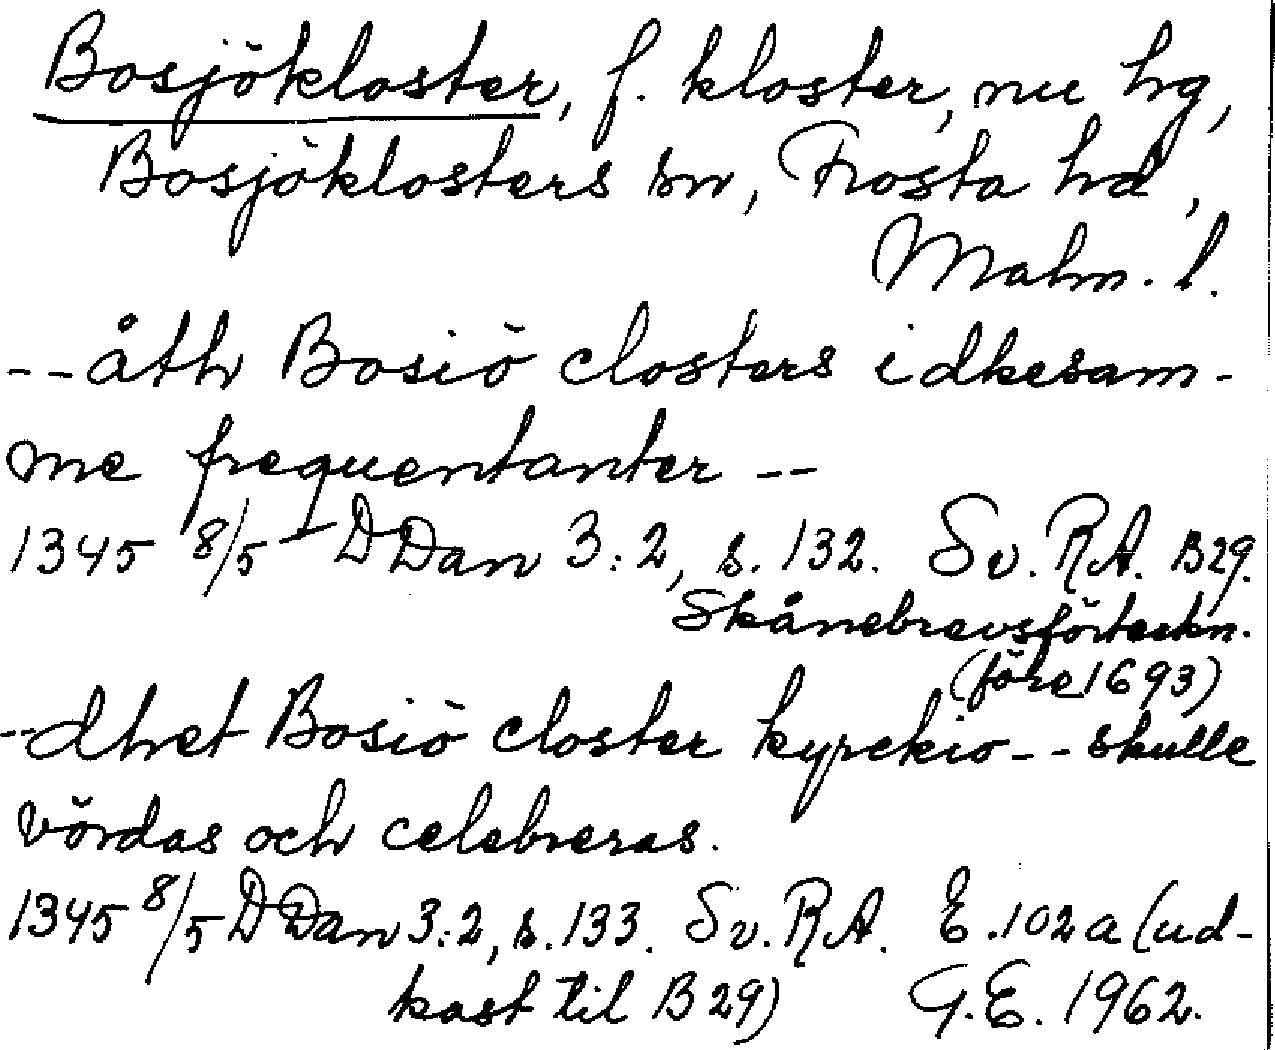 Bosjökloster, f. kloster, nu hg,
Bosjöklosters sn, Frosta hd,
Malm. l.
-- åth Bosiö closters idkesam-
me frequentanter --
1345 8/5 DDan 3:2, s. 132. Sv. RA. B29.
Skånebrevsförteckn.
(före 1693)
-- dhet Bosiö closter kyrckio -- skulle
vördas och celebreras.
1345 8/5 DDan 3:2, s. 133. Sv. RA. E.102a (ud-
kast til B29) G.E. 1962.